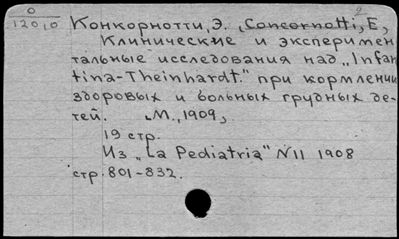 0
1201,0
Конкорнотти, Э., Concornotti, E,
Клинические и эксперимен
тальные исследования над „Infan
tina-Theinhardt." при кормлении
здоровых и больных грудных де-
тей. М., 1909,
19 стр.
Из „La Pediatria" N 11 1908
стр. 801-832.